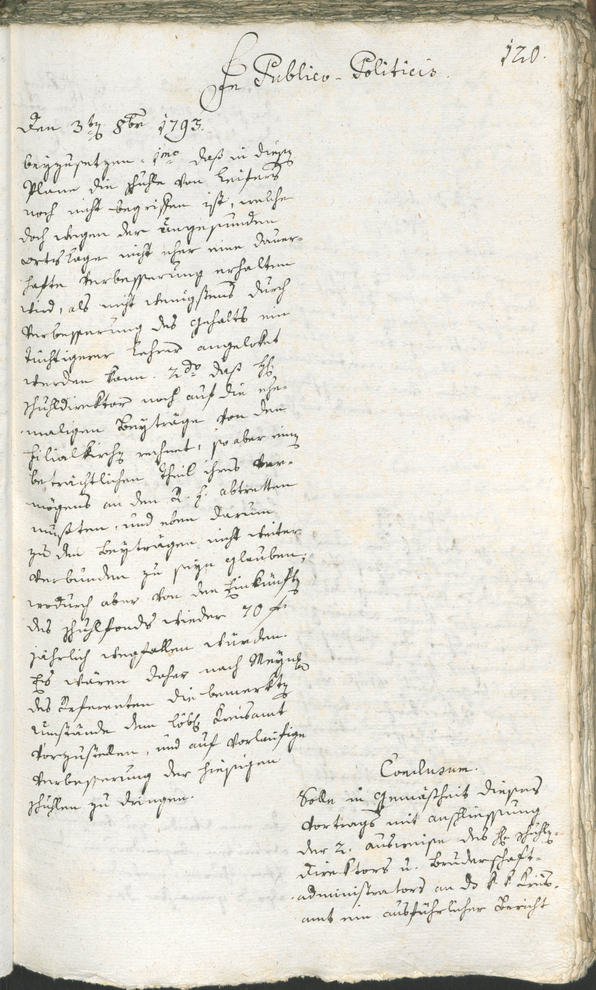 In Publico-Politicis.
120.
Den 3ten 8br 1793.
beyzusetzen. 1mo daß in diesem
Plane die Schule von Leifers
noch nicht begriffen ist, welche
doch wegen der ungesunden
Ortslage nicht eher eine dauer-
hafte Verbesserung erhalten
wird, als nicht wenigstens durch
Verbesserung des Gehalts ein
tüchtigerer Lehrer angeloket
werden kann. 2do daß H.
Schuldirektor noch auf die ehe-
maligen Beyträge von den
Filialkirchen rechnet, so aber einen
beträchtlichen Theil ihres Ver-
mögens an den R. F. abtretten
mußten, und eben darum
zu den Beyträgen nicht weiter
verbunden zu seyn glauben,
wodurch aber von den Einkünften
des Schulfonds wieder 70 f.
jährlich wegfallen würden.
Es wären daher nach Meynung
des Referenten die bemerkten
Umstände dem löbl. Kreisamt
vorzustellen, und auf vorlaufige
Verbesserung der hiesigen
Schulen zu dringen.
Conclusum.
Solle in Gemäßheit dieses
Vortrags mit Anschliessung
der 2. Ausweise des H. Schul-
direktors u. Bruderschaft-
administrators an das k. k. Kreis-
amt ein ausführlicher Bericht